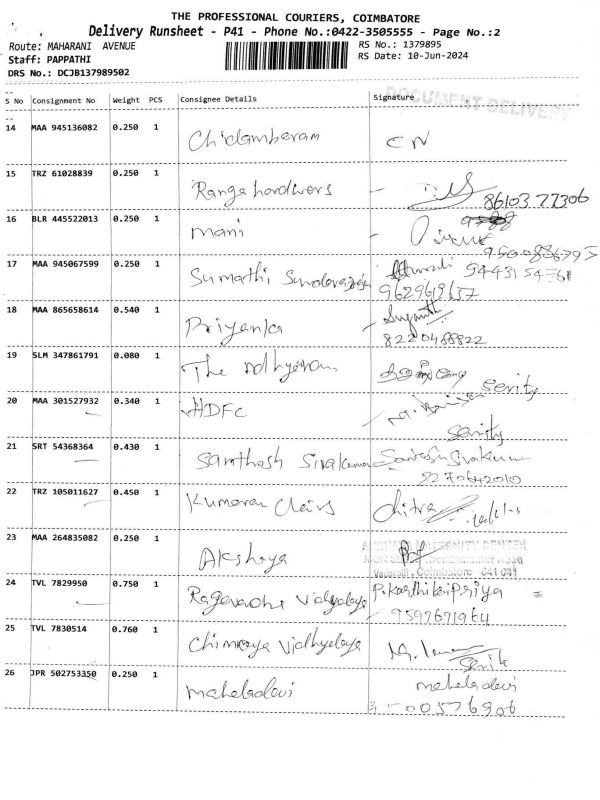 THE PROFESSIONAL COURIERS, COIMBATORE
Delivery Runsheet - P41 - Phone No.:0422-3505555 - Page No.:2
Route: MAHARANI AVENUE RS No.: 1379895
Staff: PAPPATHI RS Date: 10-Jun-2024
DRS No.: DCJB137989502
S No Consignment No Weight PCS Consignee Details Signature
DOCUMENT DELIVERY
14 MAA 945136082 0.250 1 Chidambaram CN
15 TRZ 61028839 0.250 1 Ranga hardwers
86103 77306
16 BLR 445522013 0.250 1 mani
9500886795
17 MAA 945067599 0.250 1 Sumathi 94431 54761
9629619657
18 MAA 865658614 0.540 1 Priyanka
8220488822
19 SLM 347861791 0.080 1 The
Serity
20 MAA 301527932 0.340 1 HDFC
Serity
21 SRT 54368364 0.430 1 Santhosh Sivakumar
22 TRZ 105011627 0.450 1 Kumaran Chitra
23 MAA 264835082 0.250 1 Akshaya
MATERNITY CENTER
Coimbatore
24 TVL 7829950 0.750 1 P. Karthikaipriya
9597671964
25 TVL 7830514 0.760 1 Vidhyalaya
26 JPR 502753350 0.250 1 maheladevi maheladevi